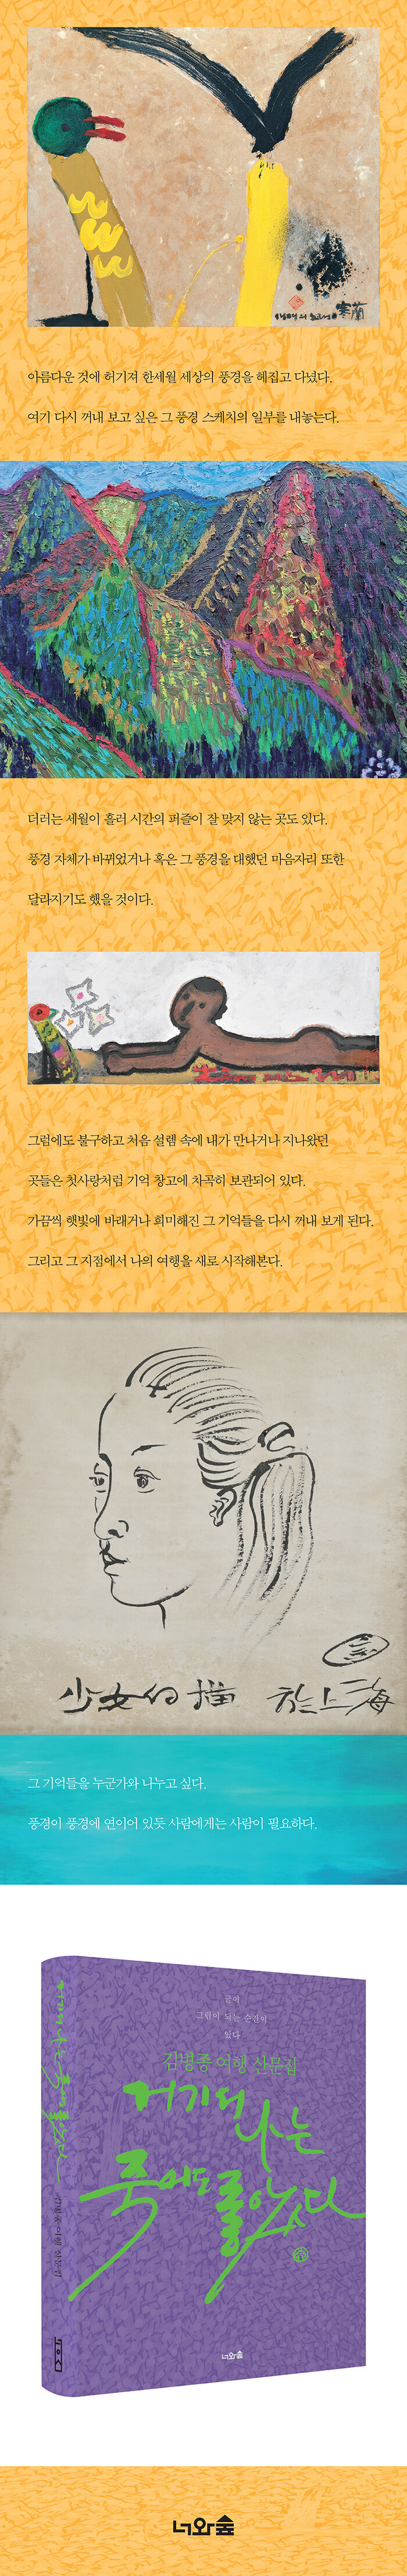 寒蘭
아름다운 것에 허기져 한세월 세상의 풍경을 헤집고 다녔다.
여기 다시 꺼내 보고 싶은 그 풍경 스케치의 일부를 내놓는다.
더러는 세월이 흘러 시간의 퍼즐이 잘 맞지 않는 곳도 있다.
풍경 자체가 바뀌었거나 혹은 그 풍경을 대했던 마음자리 또한
달라지기도 했을 것이다.
그럼에도 불구하고 처음 설렘 속에 내가 만나거나 지나왔던
곳들은 첫사랑처럼 기억 창고에 차곡히 보관되어 있다.
가끔씩 햇빛에 바래거나 희미해진 그 기억들을 다시 꺼내 보게 된다.
그리고 그 지점에서 나의 여행을 새로 시작해본다.
少女 描 於上海
그 기억들을 누군가와 나누고 싶다.
풍경이 풍경에 연이어 있듯 사람에게는 사람이 필요하다.
글이
그림이 되는 순간이
있다
김병종 여행 산문집
거기서
나는
죽어도
좋았다
너와숲
거기서 나는 죽어도 좋았다
김병종 여행 산문집
너와숲
너와숲